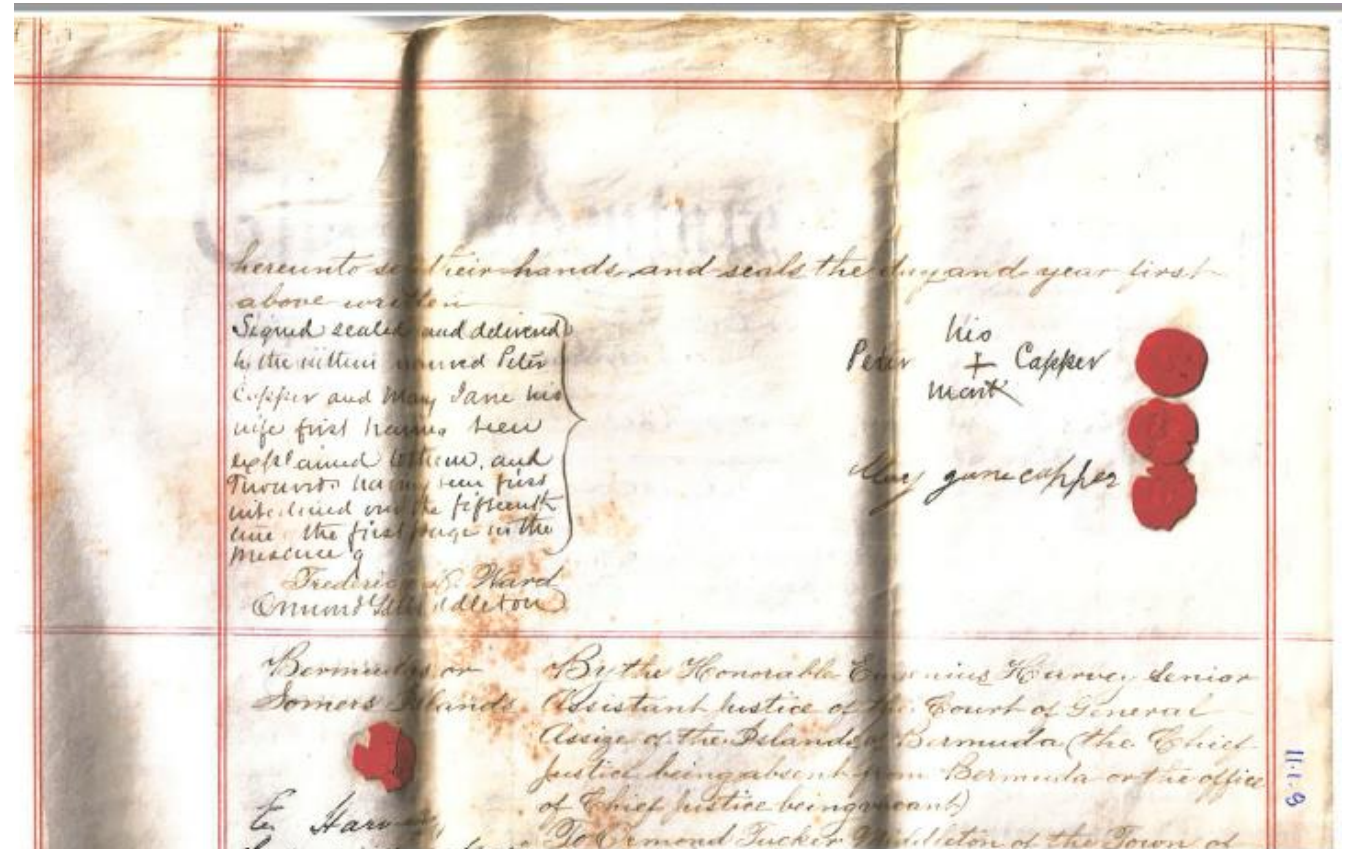 hereunto set their hands and seals the day and year first
above written
Signed sealed and delivered
by the within named Peter
Copper and Mary Jane his
wife first having been
explained to them, and
having been first
interlined on the fifteenth
line the first page in the
presence of
Frederick Ward
Ormond Middleton
his
Peter + Capper
mark
Mary gane capper
Bermudas or
Somers Islands
By the Honorable Eugenius Harvey Senior
Assistant Justice of the Court of General
Assize of the Islands of Bermuda (the Chief
Justice being absent from Bermuda or the office
of Chief Justice being vacant)
E. Harvey
To Ormond Tucker Middleton of the Town of